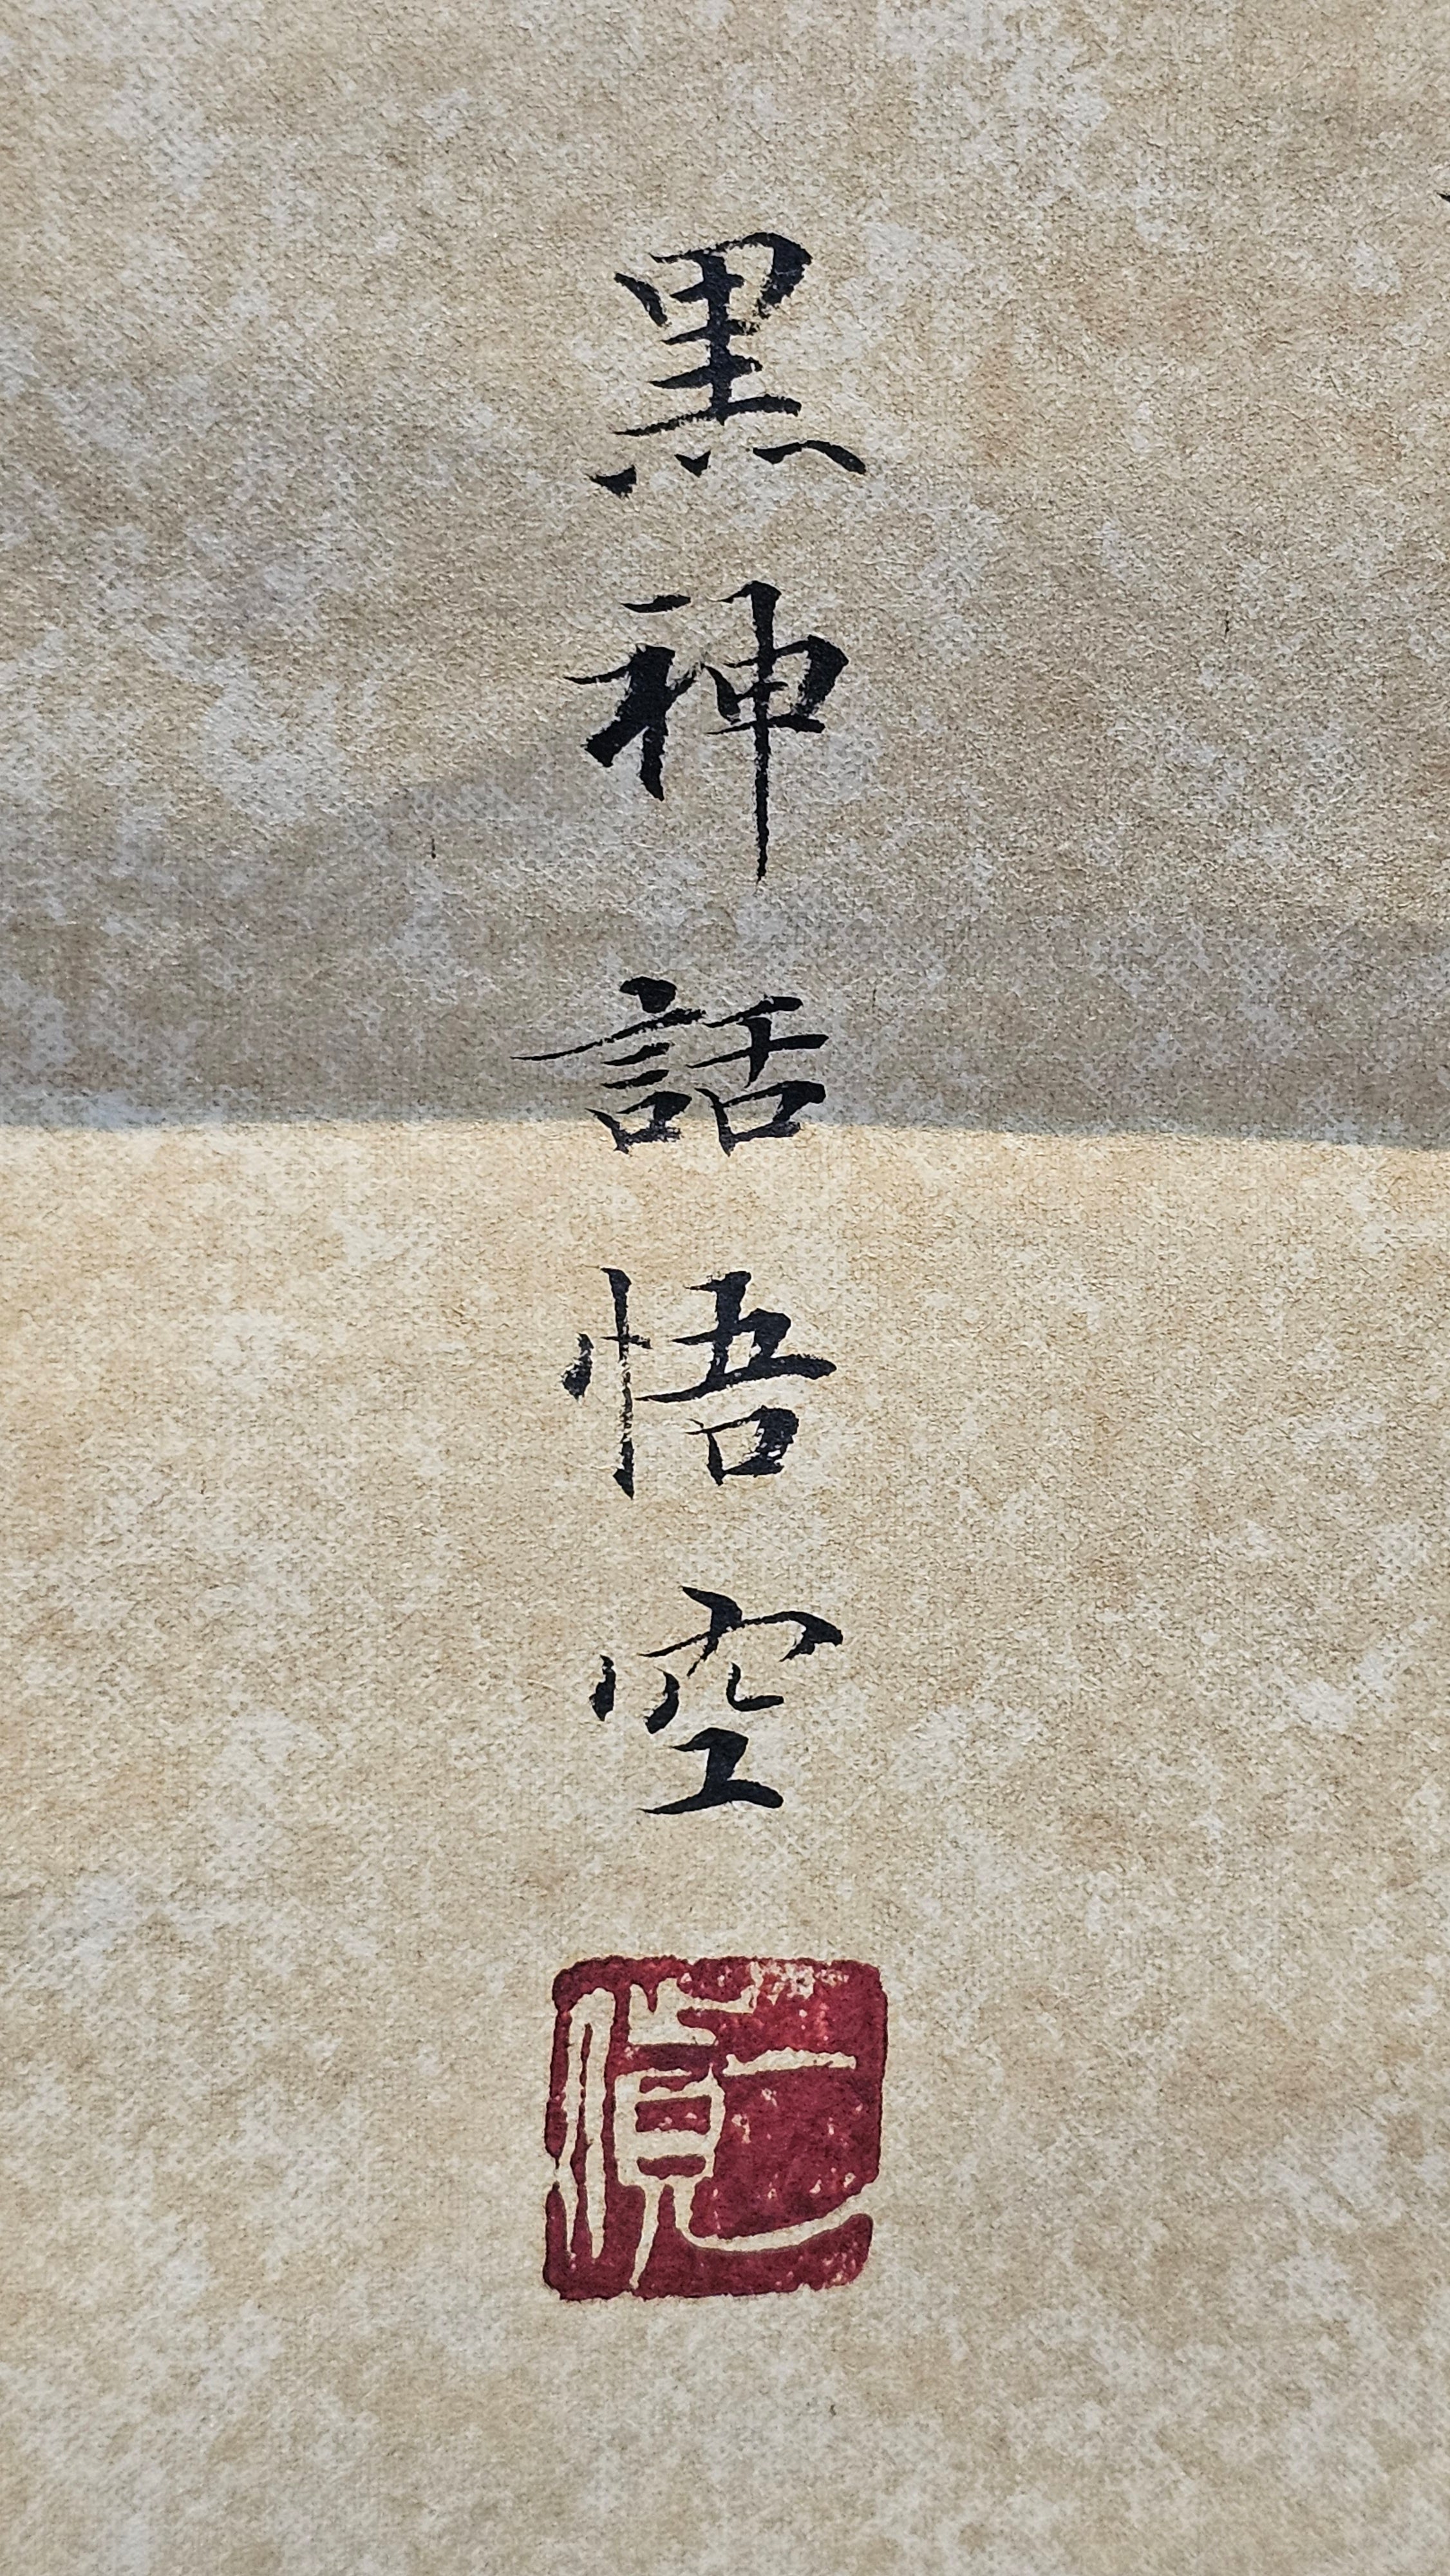 黑神話悟空